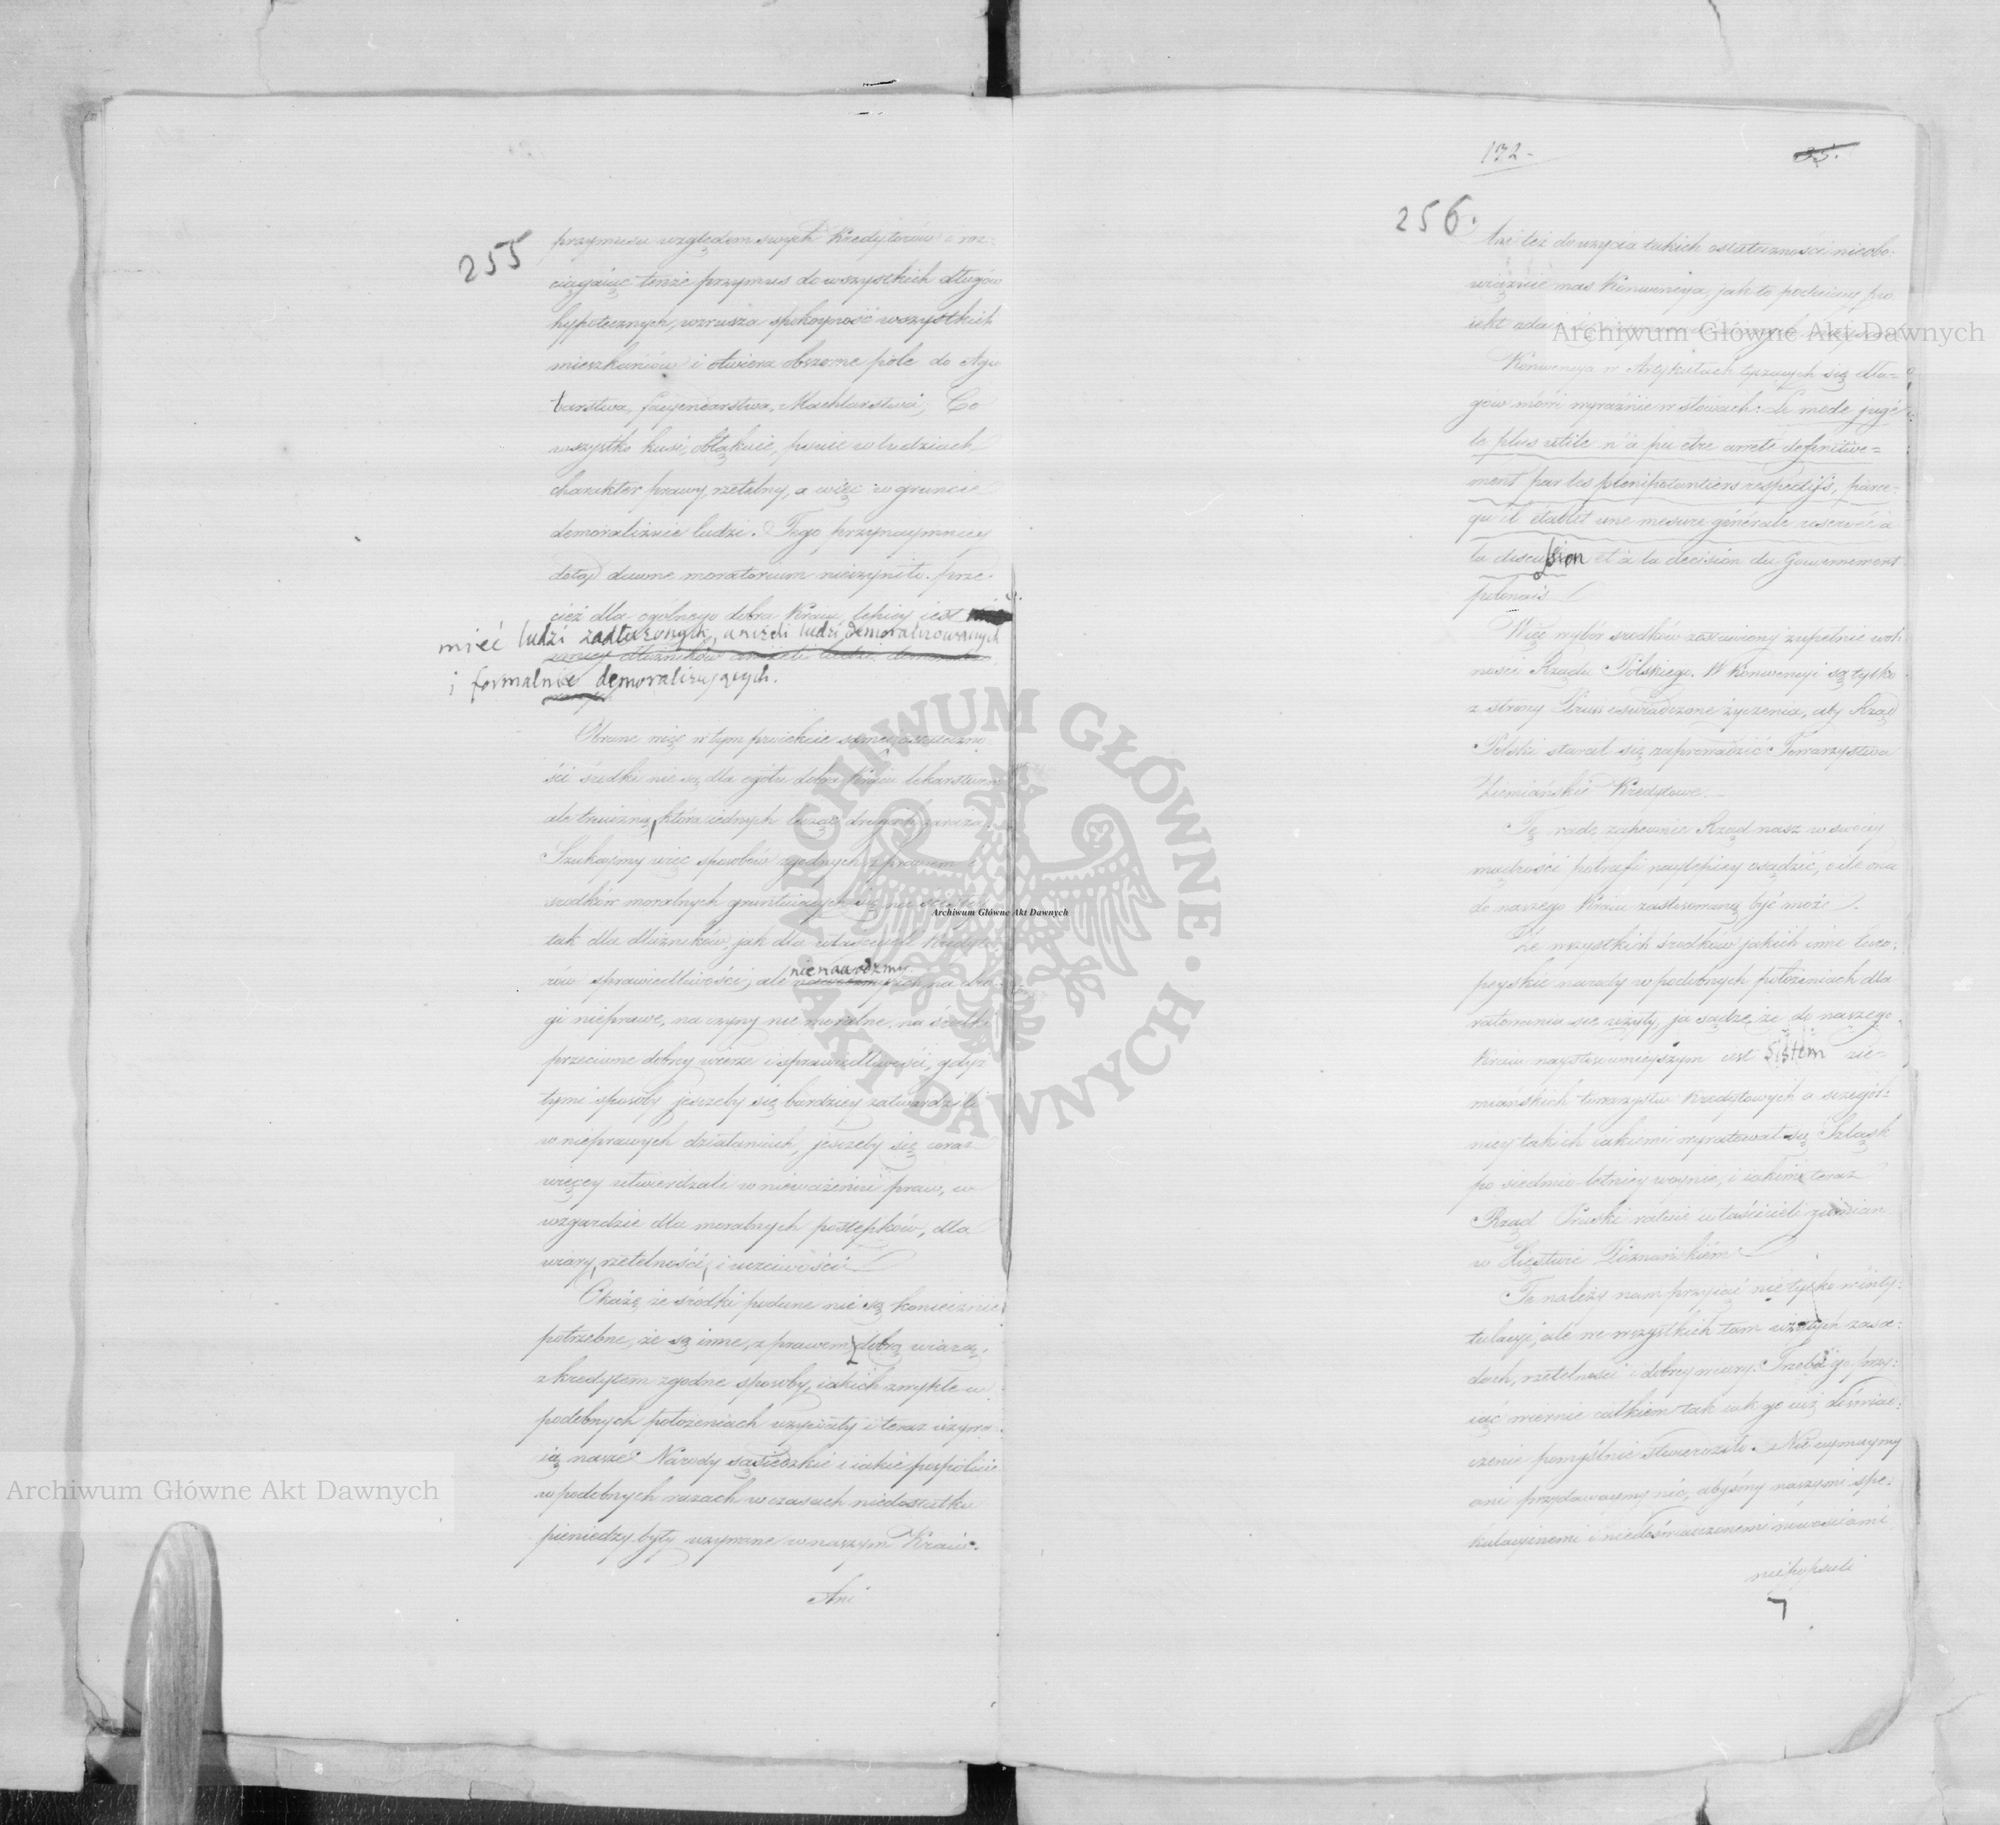 255
przymusu względem swych Kredytorów i roz-
ciągaiąc tenże przymus do wszystkich długów
hypotecznych, wzrusza spokoyność wszystkich
mieszkańców i otwiera obszerne pole do Agio
tarstwa, facyendarstwa, Machlarstwa, Co
wszystko kusi, obłąkuie, psuie w ludziach
charakter prawy, rzetelny, a więc w gruncie
demoralizuie ludzi. Tego przynaymniey
dotąd dawne moratorium nieczyniło. prze-
cież dla ogólnego dobra Kraiu, lepiey iest
mieć ludzi zadłużonych, aniżeli ludzi demoralizowanych
dłużników aniżeli ludzi
i formalnie demoralizujących.
Obrane więc w tym proiekcie same ostateczno
ści środki nie są dla ogółu dobra Kraiu lekarstwem
ale trucizną, która iednych lecząc drugich zaraża.
Szukaymy więc sposobów zgodnych z prawem i
środków moralnych gruntuiących się na
tak dla dłużników, jak dla właścicieli Kredyto-
rów sprawiedliwości, ale nienawodźmy ich na dro-
gi nieprawe, na czyny nie moralne, na środki
przeciwne dobrey wierze i sprawiedliwości, gdyż
tymi sposoby jeszczeby się bardziey zatwardzili
w nieprawych działaniach, jeszczeby się coraz
więcey utwierdzali w nieważeniu praw, w
wzgardzie dla moralnych postępków, dla
wiary, rzetelności, i uczciwości.
Okażę, że środki podane nie są koniecznie
potrzebne, że są inne, z prawem, dobrą wiarą,
z kredytem zgodne sposoby, iakich zwykle w
podobnych położeniach używały i teraz używa-
ią nasze Narody sąsiedzkie i iakie pospolicie
w podobnych razach w czasach niedostatku
pieniędzy były używane w naszym Kraiu.
Ani
172-
35.
256.
Ani też do użycia takich ostateczności nieobo-
wiązuie nas Konwencya, jak to podaiący pro
iekt
Konwencya w Artykułach tyczących się dłu-
gów mówi wyraźnie w słowach: Le mode jugé
le plus utile n'a pu etre arreté definitive-
ment par les plenipotentiers respectifs, parce-
qu'il etablit une mesure générale reservée à
la discussion et à la decision du Gouvernement
polonais
Więc wybór srodków zostawiony zupełnie wol-
ności Rządu Polskiego. W Konwencyi są tylko
z strony Prus oswiadczone życzenia, aby Rząd
Polski starał się zaprowadzić Towarzystwa
Ziemiańskie Kredytowe.
Tę radę zapewnie Rząd nasz w swoiey
mądrości potrafi naylepiey osądzić, o ile ona
do naszego Kraiu zastosowaną być może.
Ze wszystkich środków jakich inne Euro-
peyskie narody w podobnych położeniach dla
ratowania się użyły, ja sądzę, że do naszego
Kraiu naystosownieyszym iest Sistem zie-
miańskich towarzystw Kredytowych a szczegól-
niey takich iakiemi wyratował się Szląsk
po siedmio-letniey woynie, i iakimi teraz
Rząd Pruski ratuie właścicieli ziemian
w Xięstwie Poznańskiem
Te należy nam przyiąć nie tylko w inty-
tulacyi, ale we wszystkich tam użytych zasa-
dach, rzetelności i dobrey wiary. Trzeba go przy-
iąć wiernie całkiem tak iak go iuż doświad-
czenie pomyślnie stwierdziło. Nie uymuymy
ani przydawaymy nic, abyśmy naszymi spe-
kulacyinemi i niedoświadczonemi nowościami
niepopsuli
Archiwum Główne Akt Dawnych
Archiwum Główne Akt Dawnych
Archiwum Główne Akt Dawnych
ARCHIWUM GŁÓWNE · AKT DAWNYCH ·